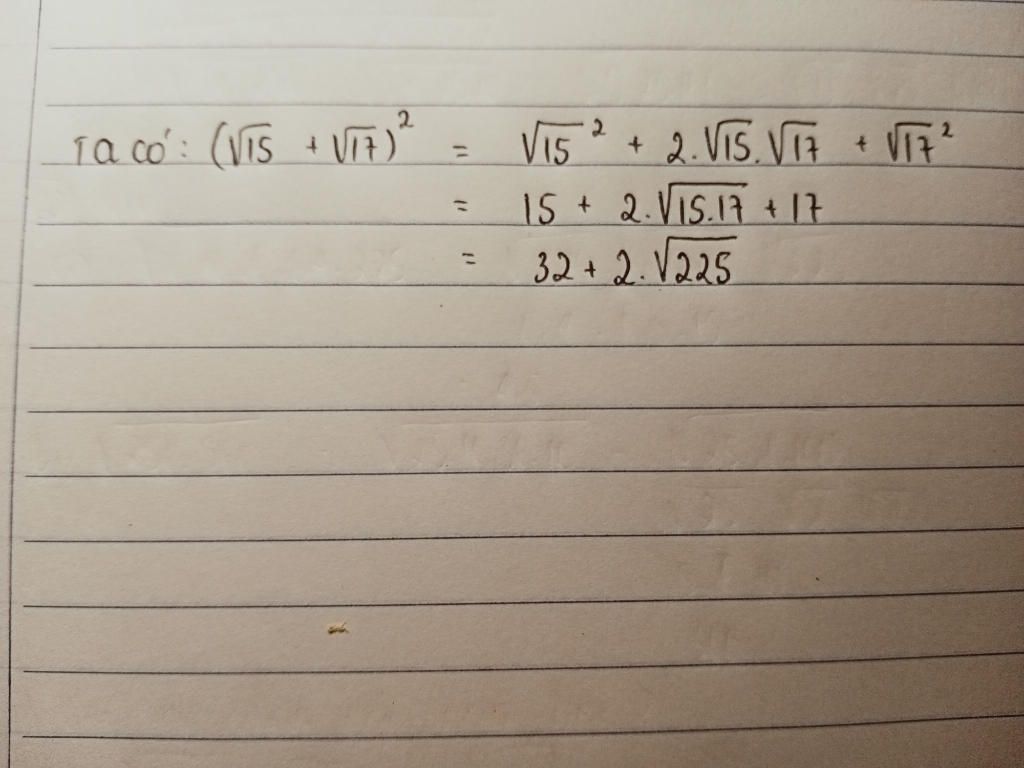 Ta có: (√15 + √17)² = √15² + 2.√15.√17 + √17²
= 15 + 2.√15.17 + 17
= 32 + 2.√225